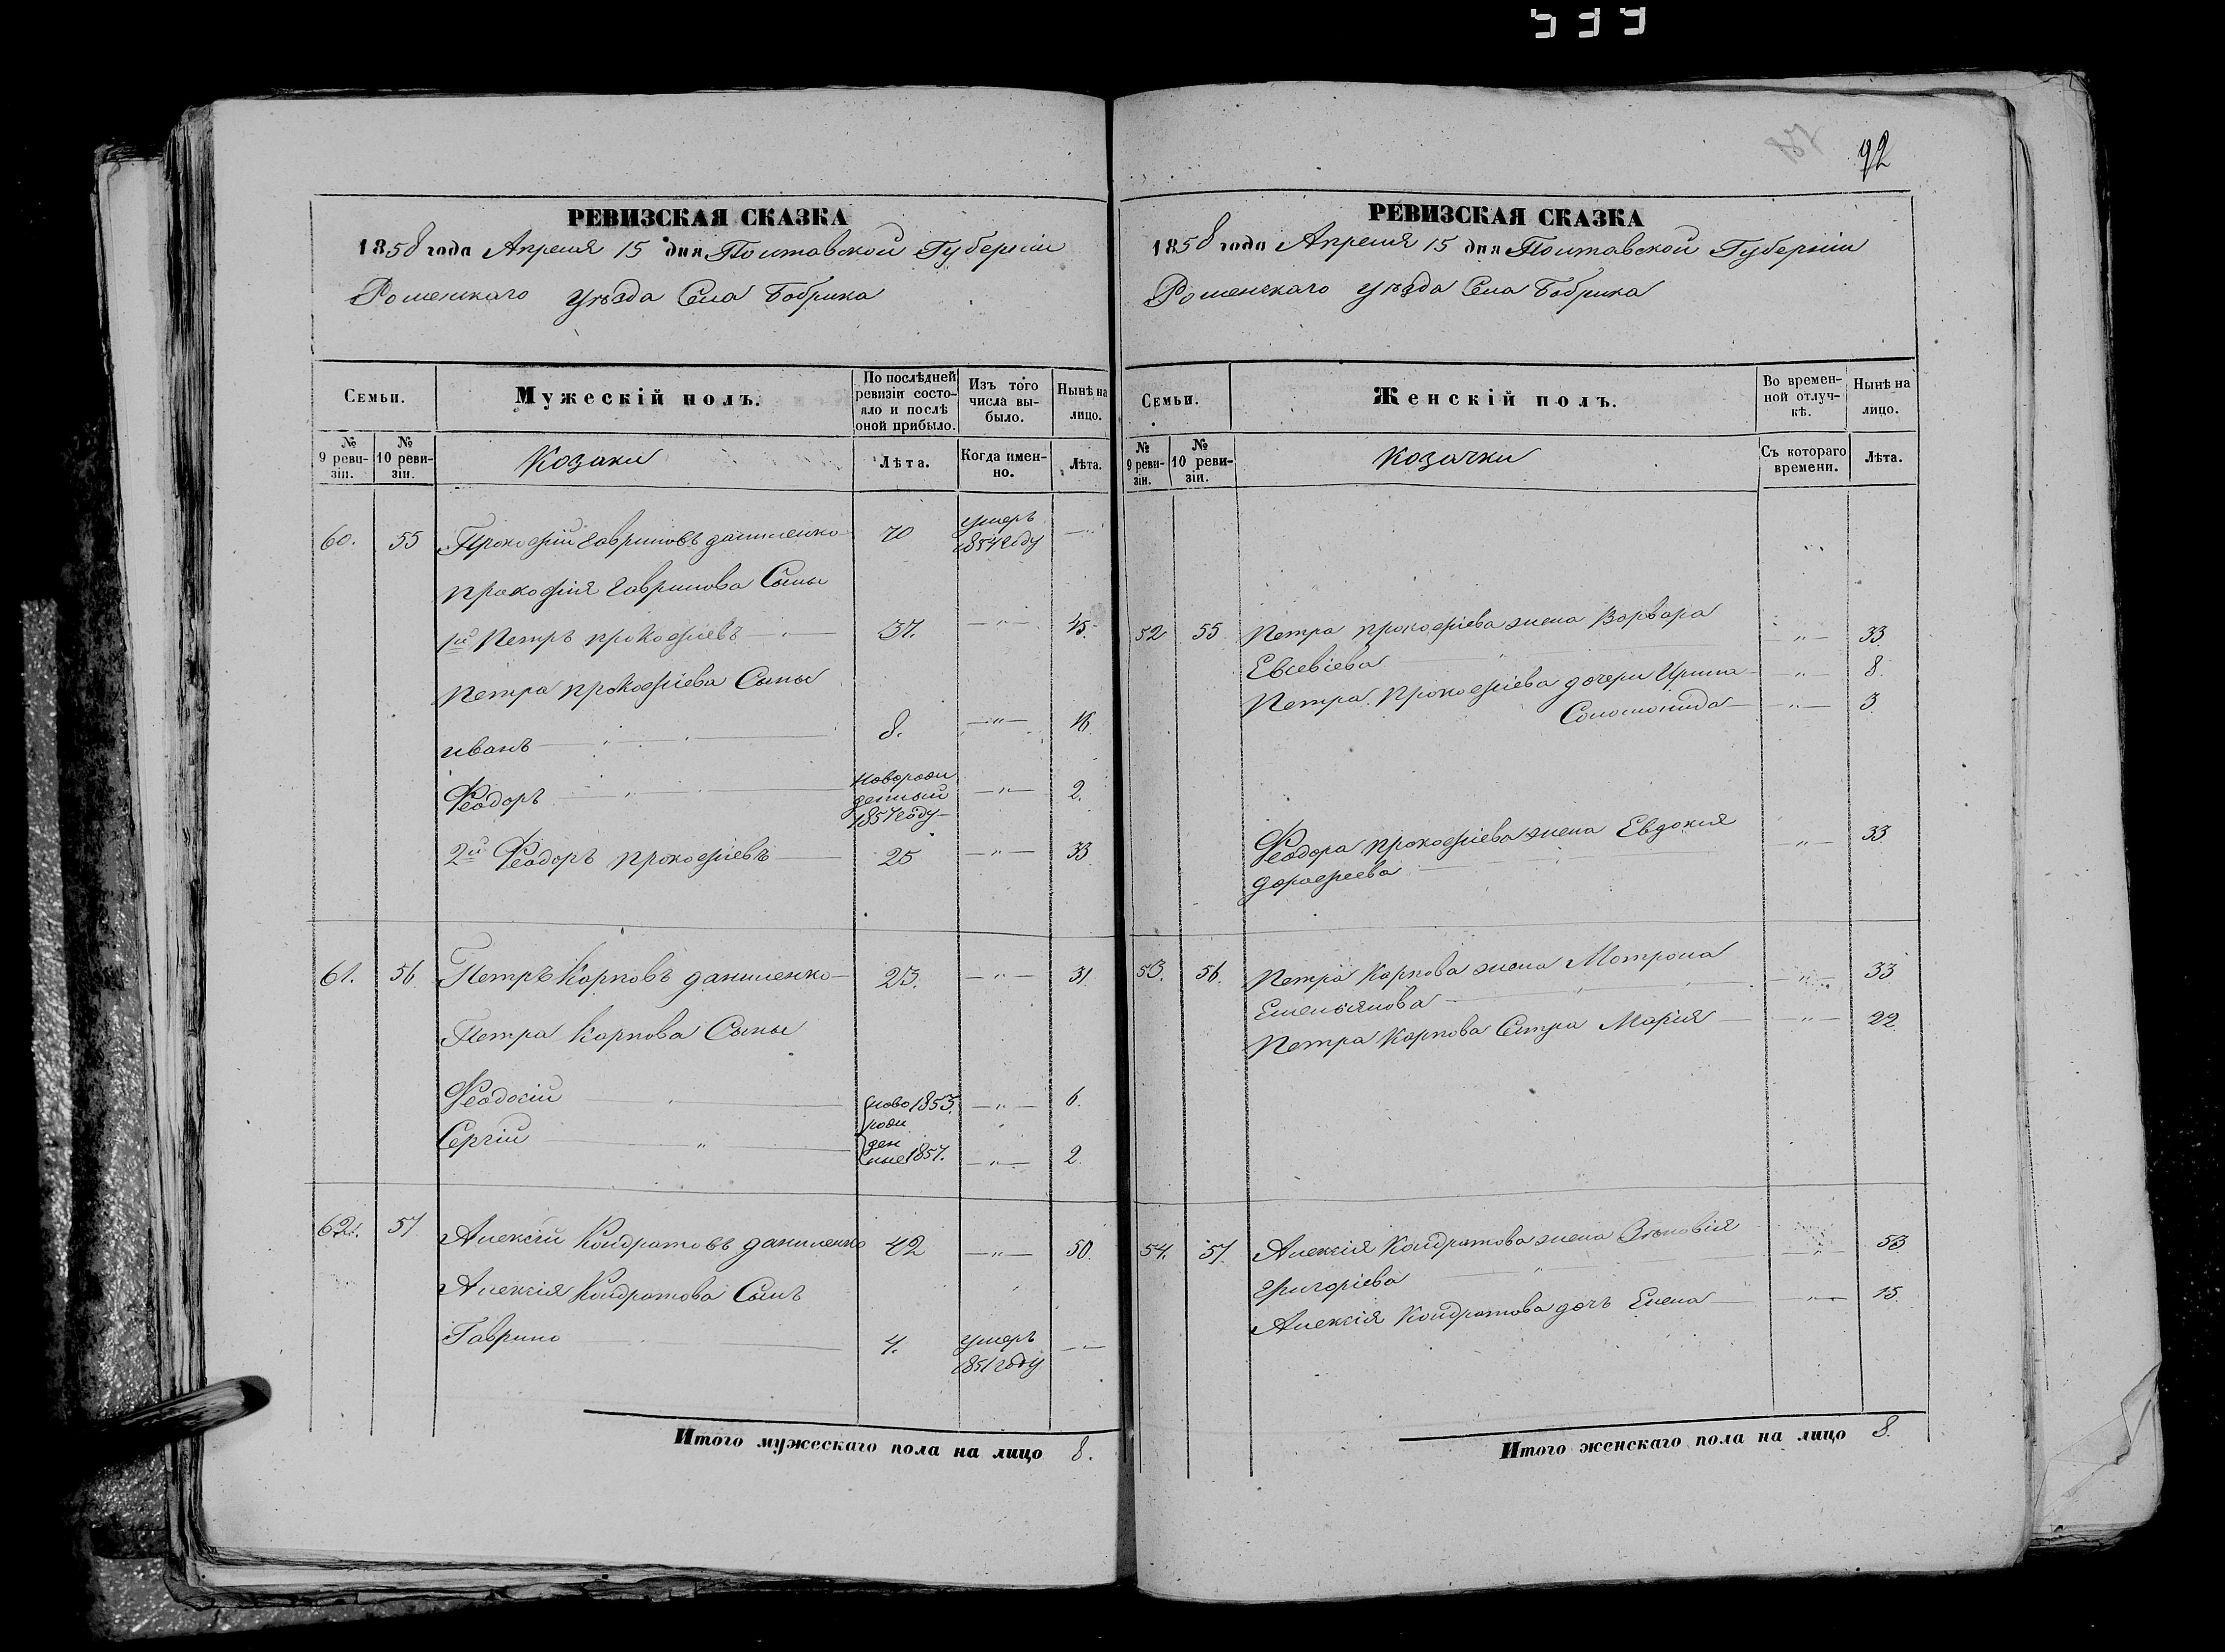 539
87
92
РЕВИЗСКАЯ СКАЗКА
1858 года Апреля 15 дня Полтавской Губерніи
Роменскаго уѣзда Села Бобрика
Семьи.
Мужескій полъ.
По послѣдней ревизіи состояло и послѣ оной прибыло.
Изъ того числа выбыло.
Нынѣ на лицо.
№ 9 ревизіи.
№ 10 ревизіи.
Козаки
Лѣта.
Когда именно.
Лѣта.
60. 55 Прокофій Гавриловъ даниленко 70 умеръ 1854 году —
прокофія Гаврилова Сыны
1й Петръ прокофіевъ — " — 37. — " — 45.
Петра прокофіева Сыны
иванъ — " — 8. — " — 16.
Феодоръ — " — новорожденный 1857 году — " — 2.
2й Феодоръ прокофіевъ — 25 — " — 33
61. 56 Петръ Карповъ даниленко — 23. — " — 31.
Петра Карпова Сыны
Феодосій — " — новорожденные 1853. — " — 6.
Сергій — " — 1857. — " — 2.
62. 57 Алексій Кондратовъ даниленко 42 — " — 50.
Алексія Кондратова Сынъ
Гаврило — 4. умеръ 1851 году — " —
Итого мужескаго пола на лицо 8.
РЕВИЗСКАЯ СКАЗКА
1858 года Апреля 15 дня Полтавской Губерніи
Роменскаго уѣзда Села Бобрика
Семьи.
Женскій полъ.
Во временной отлучкѣ.
Нынѣ на лицо.
№ 9 ревизіи.
№ 10 ревизіи.
Козачки
Съ котораго времени.
Лѣта.
52 55 Петра прокофіева жена Варвара
Евсевіева — " — 33.
Петра Прокофіева дочери Ирина — " — 8.
Соломонида — " — 3.
Феодора прокофіева жена Евдокія
дорофеева — " — 33.
53. 56. Петра Карпова жена Мотрона
Емельянова — " — 33
Петра Карпова Сестра Марія — " — 22.
54. 57. Алексія Кондратова жена Зѣновія
Григоріева — " — 53
Алексія Кондратова дочь Елена — " — 15.
Итого женскаго пола на лицо 8.